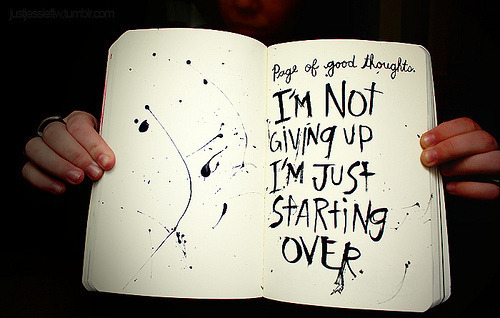 justjessiellw.tumblr.com
Page of good thoughts.
I'M NOT
GiViNg UP
I'M JUSt
StARtiNg
OVER.